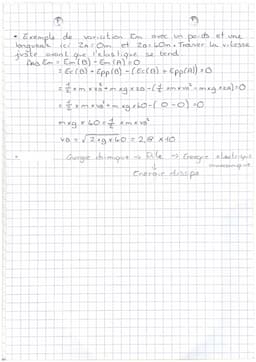 • Exemple de variation Em avec un poids et une
longueur ici ZA = 0m et ZB = 40m. Trouver la vitesse
juste avant que l'élastique se tend.
Δ Em = Em(B) - Em(A) = 0
= Ec(B) + Epp(B) - (Ec(A) + Epp(A)) = 0
= 1/2 × m × vB² + m × g × zB - (1/2 × m × vA² + m × g × zA) = 0
= 1/2 × m × vB² + m × g × 40 - (0 - 0) = 0
m × g × 40 = 1/2 × m × vB²
vB = √2 × g × 40 = 2,8 × 10
Energie chimique → Pile → Energie électrique
↓
Energie dissipée